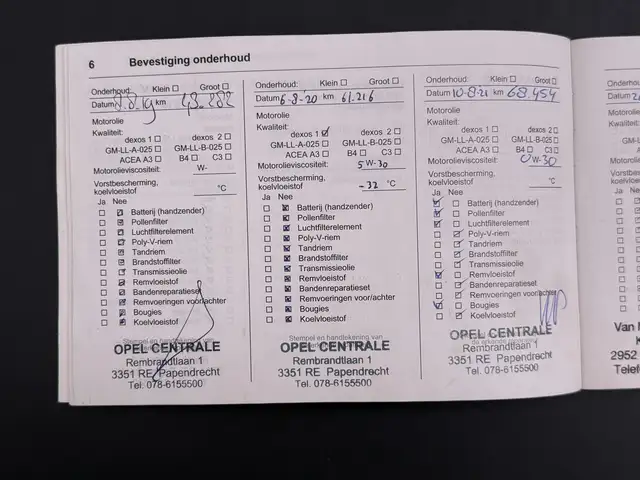 6 Bevestiging onderhoud
Onderhoud: Klein ☐ Groot ☐
Datum 9.8.19 km 43.282
Motorolie
Kwaliteit:
dexos 1 ☐ dexos 2 ☐
GM-LL-A-025 ☐ GM-LL-B-025 ☐
ACEA A3 ☐ B4 ☐ C3 ☐
Motorolieviscositeit: W-
Vorstbescherming,
koelvloeistof °C
Ja Nee
☐ ☑ Batterij (handzender)
☐ ☑ Pollenfilter
☐ ☑ Luchtfilterelement
☐ ☑ Poly-V-riem
☐ ☑ Tandriem
☐ ☑ Brandstoffilter
☐ ☑ Transmissieolie
☐ ☑ Remvloeistof
☐ ☑ Bandenreparatieset
☐ ☑ Remvoeringen voor/achter
☐ ☑ Bougies
☐ ☑ Koelvloeistof
Stempel en handtekening van
OPEL CENTRALE
Rembrandtlaan 1
3351 RE Papendrecht
Tel. 078-6155500
Onderhoud: Klein ☐ Groot ☐
Datum 6-8-'20 km 61.216
Motorolie
Kwaliteit:
dexos 1 ☑ dexos 2 ☐
GM-LL-A-025 ☐ GM-LL-B-025 ☐
ACEA A3 ☐ B4 ☐ C3 ☐
Motorolieviscositeit: 5 W-30
Vorstbescherming,
koelvloeistof -32 °C
Ja Nee
☐ ☒ Batterij (handzender)
☐ ☒ Pollenfilter
☐ ☒ Luchtfilterelement
☐ ☒ Poly-V-riem
☐ ☒ Tandriem
☐ ☒ Brandstoffilter
☐ ☒ Transmissieolie
☐ ☒ Remvloeistof
☐ ☒ Bandenreparatieset
☐ ☒ Remvoeringen voor/achter
☐ ☒ Bougies
☐ ☒ Koelvloeistof
Stempel en handtekening van
OPEL CENTRALE
Rembrandtlaan 1
3351 RE Papendrecht
Tel. 078-6155500
Onderhoud: Klein ☐ Groot ☐
Datum 10-8-21 km 68.454
Motorolie
Kwaliteit:
dexos 1 ☐ dexos 2 ☐
GM-LL-A-025 ☐ GM-LL-B-025 ☐
ACEA A3 ☐ B4 ☐ C3 ☐
Motorolieviscositeit: 0 W-30
Vorstbescherming,
koelvloeistof °C
Ja Nee
☑ ☐ Batterij (handzender)
☑ ☐ Pollenfilter
☑ ☐ Luchtfilterelement
☐ ☑ Poly-V-riem
☐ ☑ Tandriem
☐ ☑ Brandstoffilter
☐ ☑ Transmissieolie
☑ ☐ Remvloeistof
☐ ☑ Bandenreparatieset
☐ ☑ Remvoeringen voor/achter
☑ ☐ Bougies
☐ ☑ Koelvloeistof
OPEL CENTRALE
Rembrandtlaan 1
3351 RE Papendrecht
Tel. 078-6155500
Van
2952
Telef